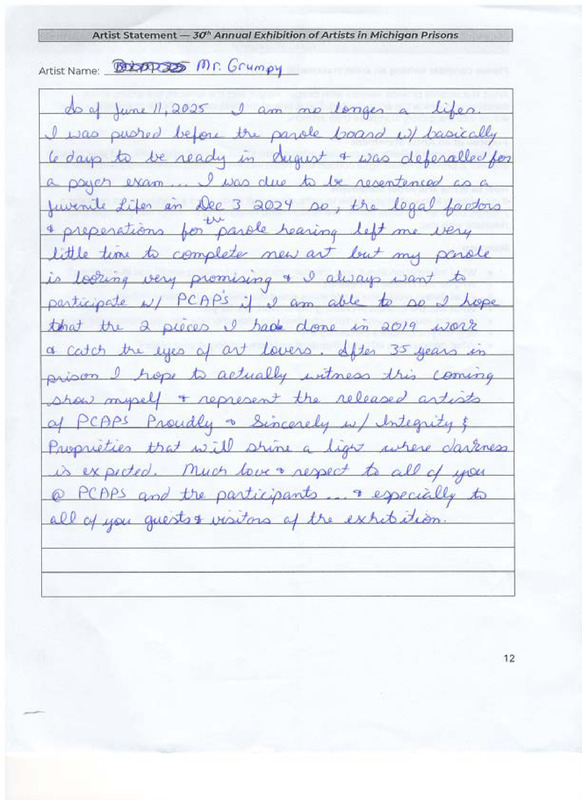 Artist Statement — 30th Annual Exhibition of Artists in Michigan Prisons
Artist Name: Mr. Grumpy
As of June 11, 2025 I am no longer a lifer.
I was pushed before the parole board w/ basically
6 days to be ready in August & was deferalled for
a psych exam... I was due to be resentenced as a
Juvenile Lifer in Dec 3 2024 so, the legal factors
& preperations for the parole hearing left me very
little time to complete new art but my parole
is looking very promising & I always want to
participate w/ PCAP'S if I am able to so I hope
that the 2 pieces I had done in 2019 work
& catch the eyes of art lovers. After 35 years in
prison I hope to actually witness this coming
show myself & represent the released artists
of PCAPS Proudly & Sincerely w/ Integrity &
Proprieties that will shine a light where darkness
is expected. Much love & respect to all of you
@ PCAPS and the participants .... & especially to
all of you guests & visitors of the exhibition.
12